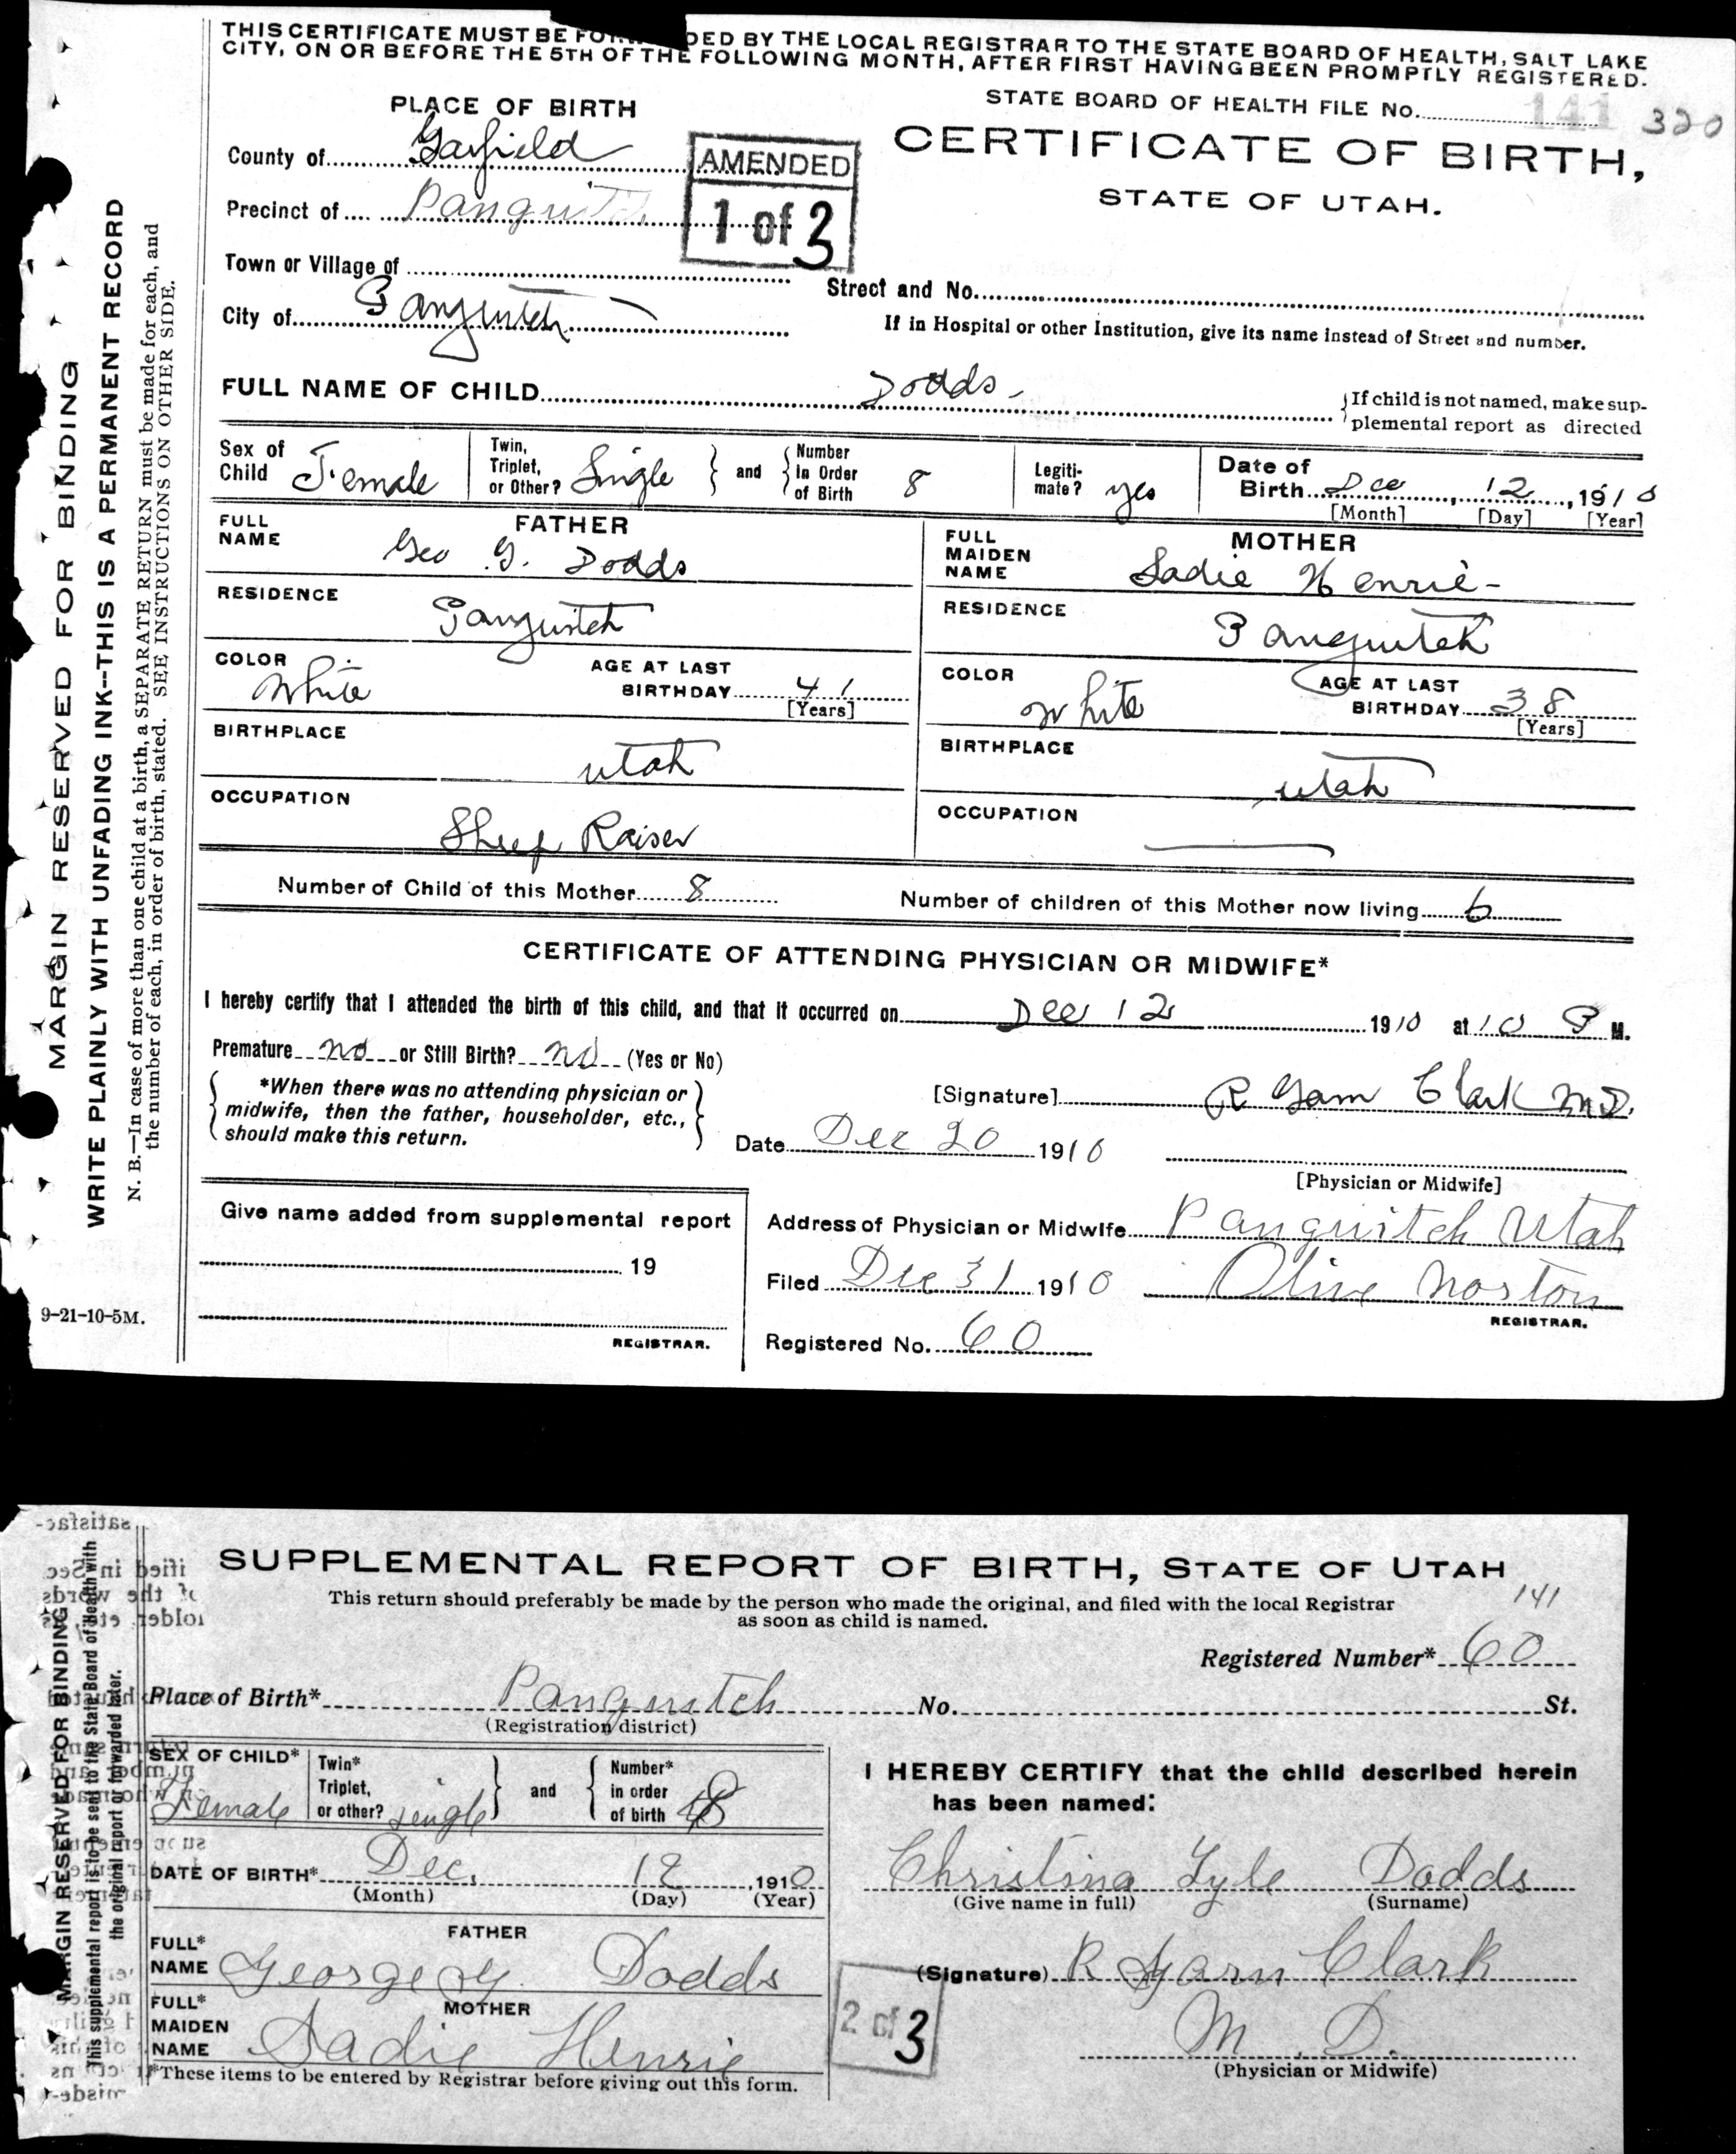 THIS CERTIFICATE MUST BE FO DED BY THE LOCAL REGISTRAR TO THE STATE BOARD OF HEALTH, SALT LAKE
CITY, ON OR BEFORE THE 5TH OF THE FOLLOWING MONTH, AFTER FIRST HAVING BEEN PROMPTLY REGISTERED.
STATE BOARD OF HEALTH FILE No. 141 320
CERTIFICATE OF BIRTH,
STATE OF UTAH.
PLACE OF BIRTH
County of Garfield
Precinct of Panguitch
AMENDED
1 of 3
Town or Village of
Street and No.
City of Panguitch
If in Hospital or other Institution, give its name instead of Street and number.
FULL NAME OF CHILD Dodds
If child is not named, make sup-
plemental report as directed
Sex of Child Female
Twin, Triplet, or Other? Single and Number in Order of Birth 8
Legiti-
mate? yes
Date of Birth Dec 12, 1910
[Month] [Day] [Year]
FATHER
FULL NAME Geo G. Dodds
RESIDENCE Panguitch
COLOR White
AGE AT LAST BIRTHDAY 41
[Years]
BIRTHPLACE utah
OCCUPATION Sheep Raiser
MOTHER
FULL MAIDEN NAME Sadie Henrie
RESIDENCE Panguitch
COLOR White
AGE AT LAST BIRTHDAY 38
[Years]
BIRTHPLACE utah
OCCUPATION
Number of Child of this Mother 8
Number of children of this Mother now living 6
CERTIFICATE OF ATTENDING PHYSICIAN OR MIDWIFE*
I hereby certify that I attended the birth of this child, and that it occurred on Dec 12 1910 at 10 P M.
Premature no or Still Birth? no (Yes or No)
*When there was no attending physician or
midwife, then the father, householder, etc.,
should make this return.
[Signature] R Garn Clark M.D.
Date Dec 20 1910
[Physician or Midwife]
Give name added from supplemental report
19
REGISTRAR.
Address of Physician or Midwife Panguitch Utah
Filed Dec 31 1910 Olive Norton
REGISTRAR.
Registered No. 60
9-21-10-5M.
MARGIN RESERVED FOR BINDING
WRITE PLAINLY WITH UNFADING INK--THIS IS A PERMANENT RECORD
N. B.—In case of more than one child at a birth, a SEPARATE RETURN must be made for each, and
the number of each, in order of birth, stated. SEE INSTRUCTIONS ON OTHER SIDE.
SUPPLEMENTAL REPORT OF BIRTH, STATE OF UTAH
This return should preferably be made by the person who made the original, and filed with the local Registrar
as soon as child is named.
141
Registered Number* 60
Place of Birth* Panguitch No. St.
(Registration district)
SEX OF CHILD* Female
Twin* Triplet, or other? single and Number* in order of birth 8
DATE OF BIRTH* Dec. 12, 1910
(Month) (Day) (Year)
FATHER
FULL* NAME George G. Dodds
MOTHER
FULL* MAIDEN NAME Sadie Henrie
*These items to be entered by Registrar before giving out this form.
I HEREBY CERTIFY that the child described herein
has been named:
Christina Lyle Dodds
(Give name in full) (Surname)
(Signature) R Garn Clark
M. D.
(Physician or Midwife)
2 of 3
MARGIN RESERVED FOR BINDING
This supplemental report is to be sent to the State Board of Health with
the original report or forwarded later.